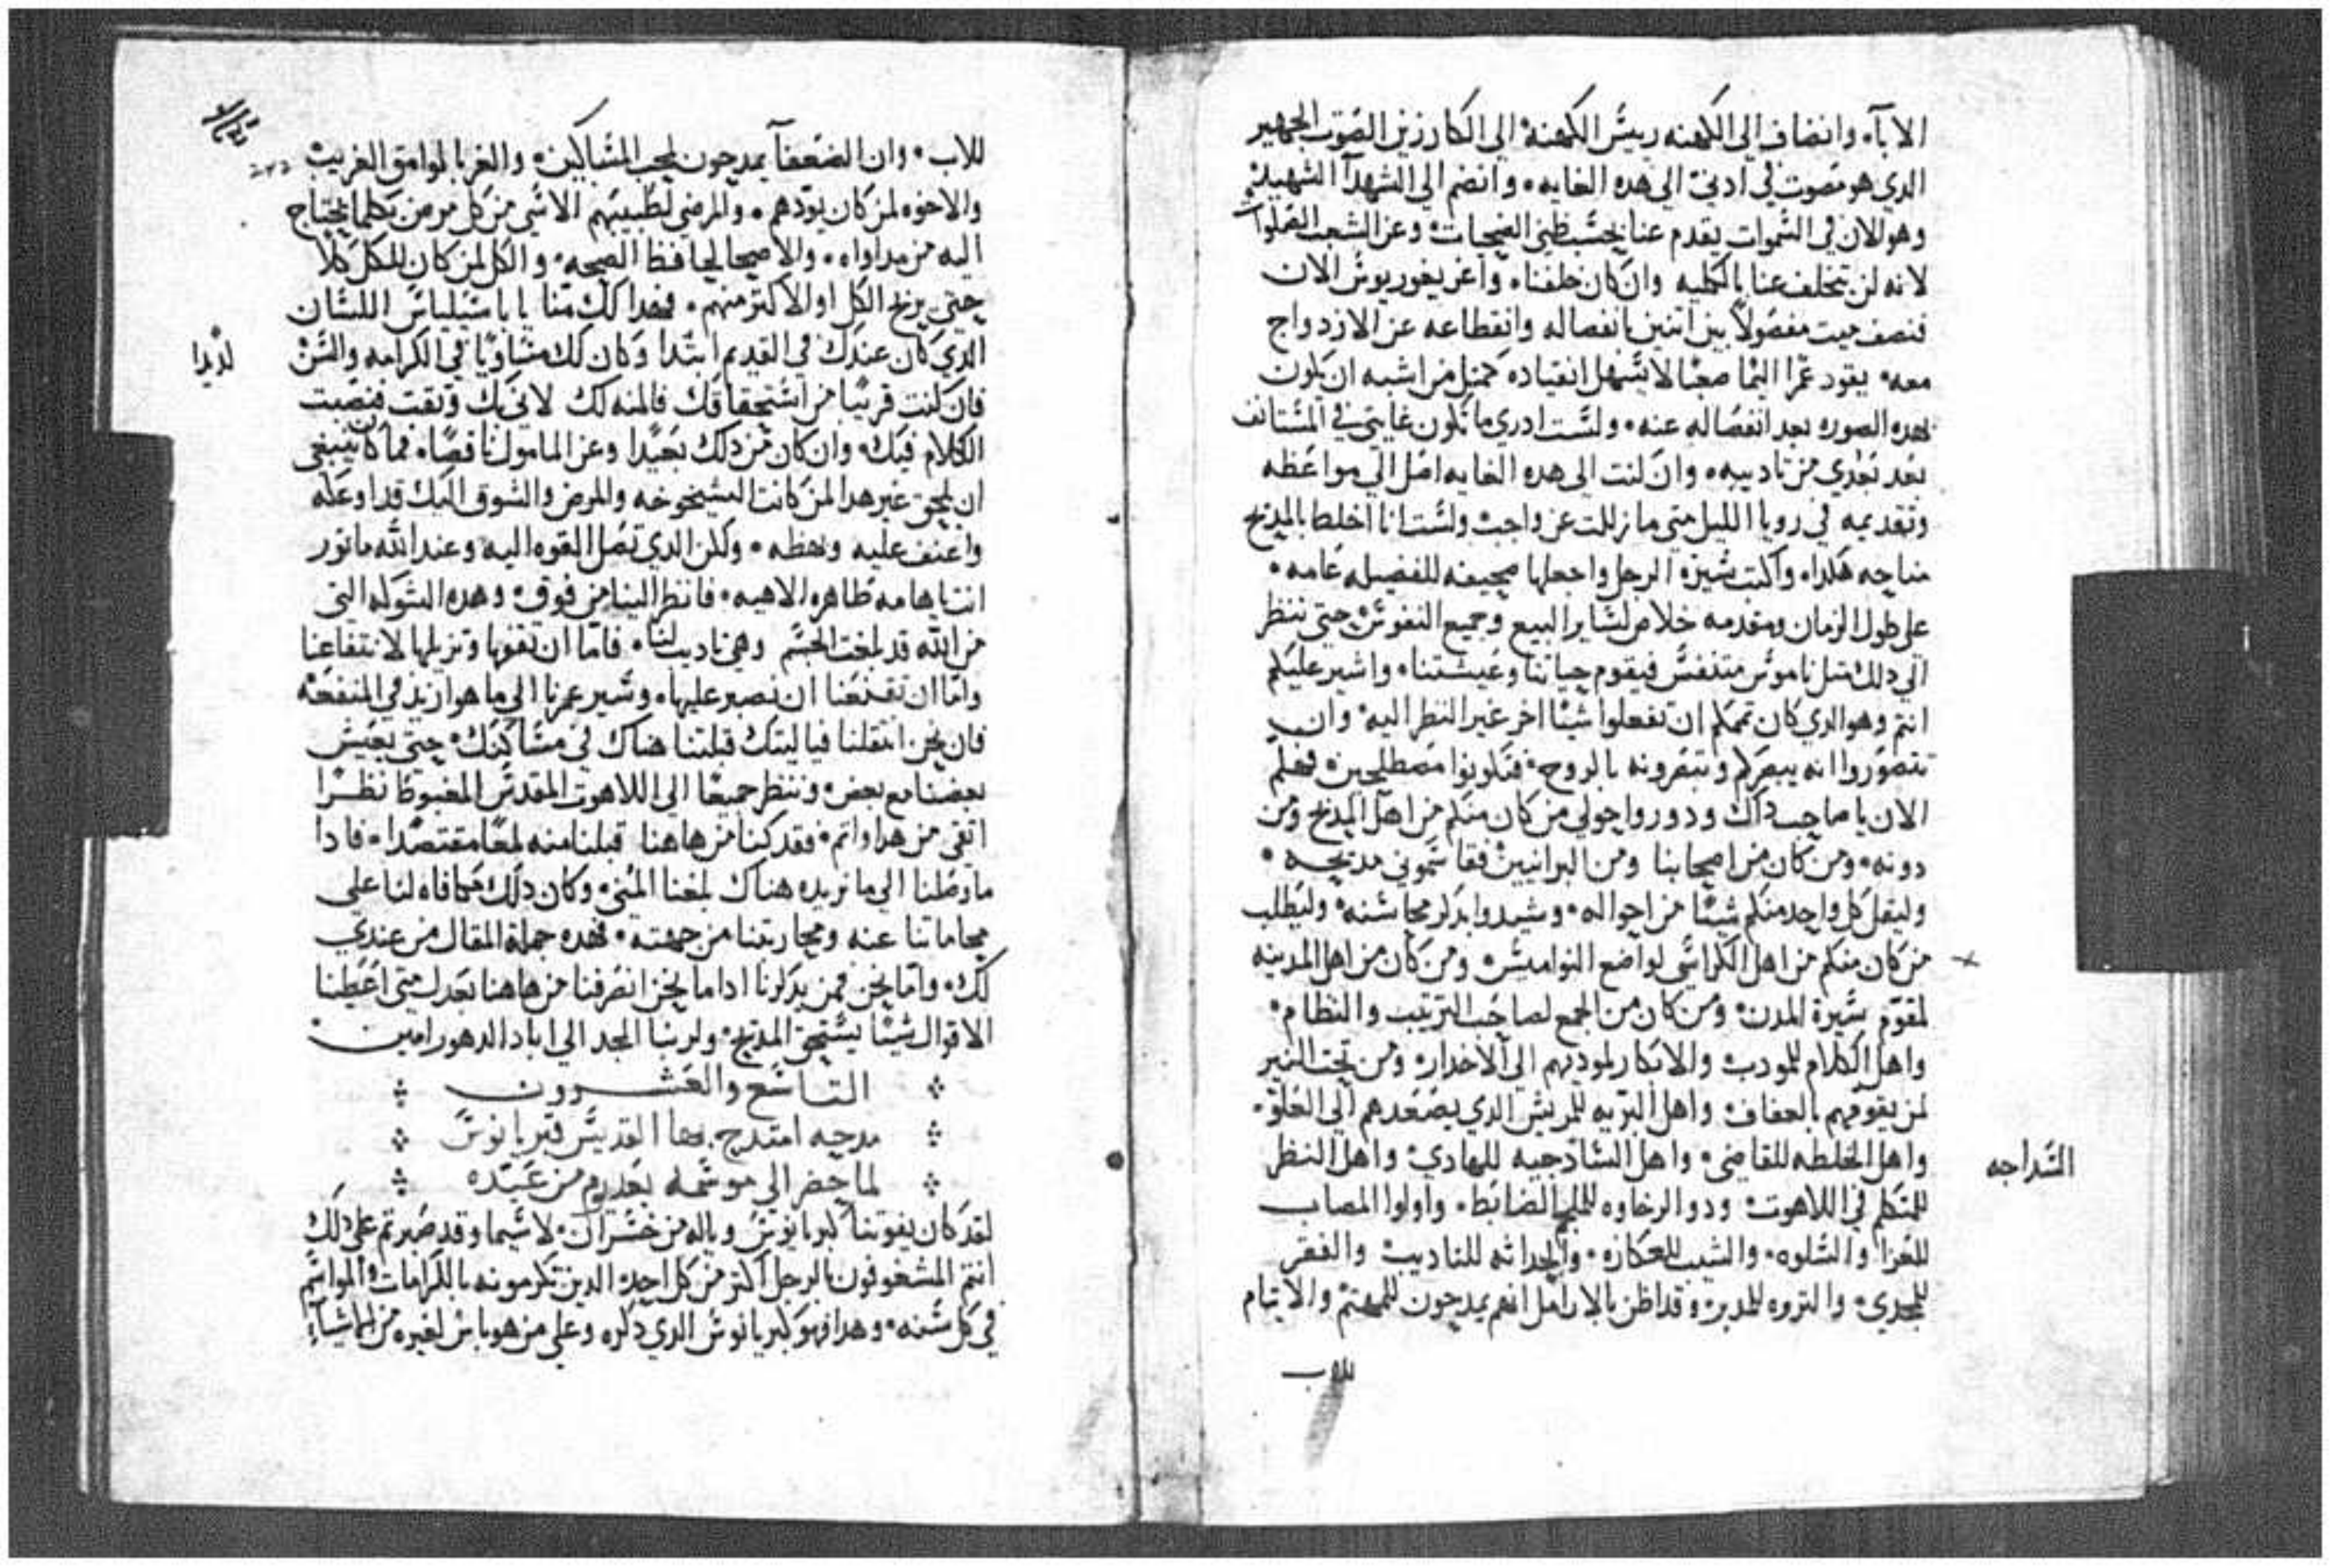 الاباء وانضاف الي الكهنه ريس الكهنه الي الكارزين الصوت الجهير
الدي هو مصوت لي ادني الي هده الغايه وانضم الي الشهدا الشهيد
وهو الان في السموات يقدم عنا بحسب ظني الضحيات وعن الشعب الصلوات
لانه لن يتخلف عنا بالكليه وان كان خلفنا واغريغوريوس الان
فنصف ميت مفصولا بين اتنين بانفصاله وانقطاعه عن الازدواج
معه يقود عمرا اليما صعبا لا يسهل انقياده كمتل من اشبه ان يكون
بهده الصوره بعد انفصاله عنه ولست ادري ما تكون غايتي في المستانف
بعد بعدي من تاديبه وان كنت الي هده الغايه اصل الي مواعظه
وتقديمه في رويا الليل متي ما زللت عن واجب ولست انا اخلط بالمديح
مناحه هكدا واكتب سيرة الرجل واجعلها صحيفه للفضيله عامه
علي طول الزمان ومقدمه خلاص لساير البيع وجميع النفوس حتي ننظر
الي دلك متل ناموس متنفس فيقوم حياتنا وعيشتنا واشير عليكم
انتم وهو الدي كان تممكم ان تفعلوا شيا اخر غير النظر اليه وان
تتصوروا انه يبصركم وتبصرونه بالروح فتكونوا مصطلحين فهلم
الان يا صاحب داك ودوروا حولي من كان منكم من اهل المديح ومن
دونه ومن كان من اصحابنا ومن البرانيين فقاسموني مديحه
وليقل كل واحد منكم شيا من احواله وشيدوا بدكر محاسنه وليطلب
من كان منكم من اهل الكراسي لواضع النواميس ومن كان من اهل المدينه
لمقوم سيرة المدن ومن كان من الجمع لصاحب الترتيب والنظام
واهل الكلام للمودب والابكار لموديهم الي الاخدار ومن تحت النير
لمن يقومهم بالعفاف واهل البريه للمريش الدي يصعدهم الي العلو
واهل الخلطه للقاضي واهل السادجيه للهادي واهل النظر
السداجه
للمتكلم في اللاهوت ودو الرخاوه للملجم الضابط واولوا المصاب
للعزا والسلوه والشيب للعكازه والحداته للتاديب والفقر
للمجدي والتروه للمدبر وقد اظن بالارامل انهم يمدحون للمهتم والايتام
للاب
للاب وان الضعفا يمدحون لمحب المساكين والغربا لوامق الغريب
والاخوه لمن كان يودهم والمرضي لطبيبهم الاسي من كل مرض بكلما يحتاج
اليه من مداواه والاصحا لحافظ الصحه والكل لمن كان للكل كلا
حتي يربح الكل او الاكتر منهم فهدا لك منا يا باسيلياس اللسان
الدي كان عندك في القديم ابتدا وكان لك مساويا في الكرامه والسن
لديدا
فان كنت قريبا من استحقاقك فالمنه لك لاني بك وتقت فنصبت
الكلام فيك وان كان من دلك بعيدا وعن المامول ناقصا فما كان ينبغي
ان يلحق غير هدا لمن كانت الشيخوخه والمرض والشوق اليك قد اوعكه
واعنف عليه وبهظه ولكن الدي تصل القوه اليه وعند الله ماتور
انت يا هامه طاهره الاهيه فانظر الينا من فوق وهده الشوكه التي
من الله قد بلغت الجسم وهي تاديب لنا فاما ان تقفها وتزيلها لانتفاعنا
واما ان تقنعنا ان نصبر عليها وسير عمرنا الي ما هو ازيد في المنفعه
فان نحن انتقلنا فيا ليتك قبلتنا هناك في مساكنك حتي يعيش
بعضنا مع بعض وننظر جميعا الي اللاهوت المقدس المغبوط نظرا
انقي من هدا واتم فقد كنا من هاهنا قبلنا منه لمعا مقتصدا فادا
ما وصلنا الي ما نريده هناك بلغنا المني وكان دلك مكافاه لنا علي
محاماتنا عنه ومحاربتنا من جهته فهده جملة المقال من عندي
لك واما نحن فمن يدكرنا ادا ما نحن انصرفنا من هاهنا بعدك متي اعطينا
الاقوال شيا يستحق المديح ولربنا المجد الي اباد الدهور امين
التاسع والعشرون
مدحه امتدح بها القديس قبريانوس
لما حضر الي موسمه بعد يوم من عيده
لقد كان يفوتنا كبريانوس وياله من خسران لا سيما وقد صبرتم علي دلك
انتم المشغوفون بالرجل اكتر من كل احد الدين تكرمونه بالكرامات والمواسم
في كل سنه وهدا فهو كبريانوس الدي دكره وعلي من هو باس لغيره من الاشيا